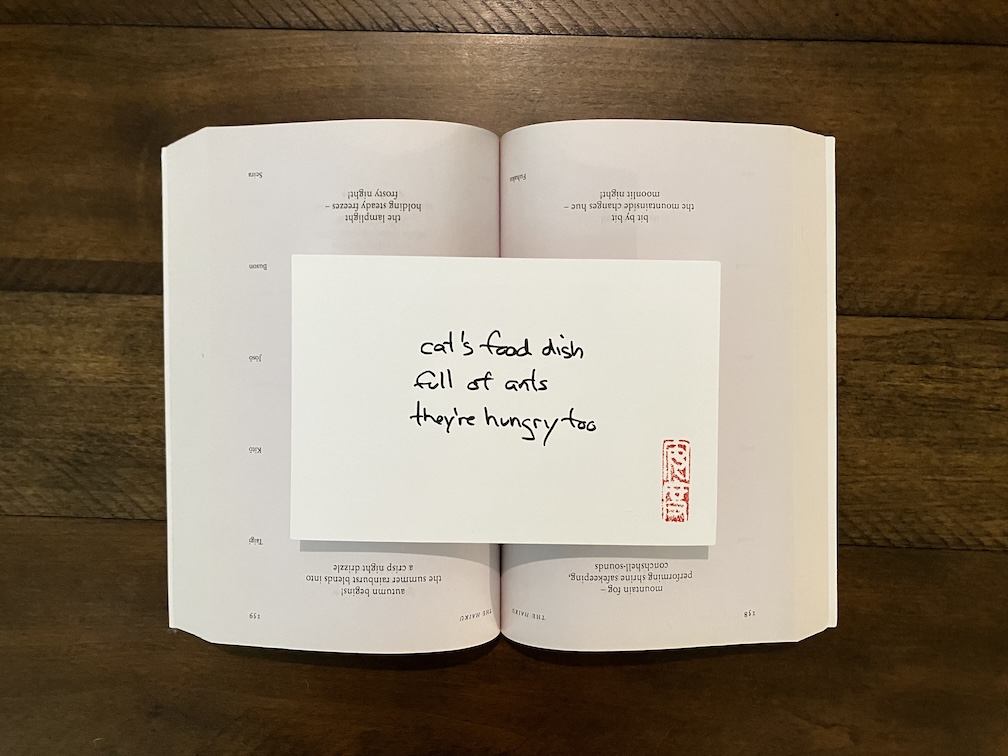 cat's food dish
full of ants
they're hungry too
158
THE HAIKU
mountain fog –
performing shrine safekeeping,
conchshell-sounds
bit by bit
the mountainside changes hue –
moonlit night!
Fuhaku
THE HAIKU
159
autumn begins!
the summer rainburst blends into
a crisp night drizzle
Taigi
Kitō
Jōsō
Buson
the lamplight
holding steady freezes –
frosty night!
Seira